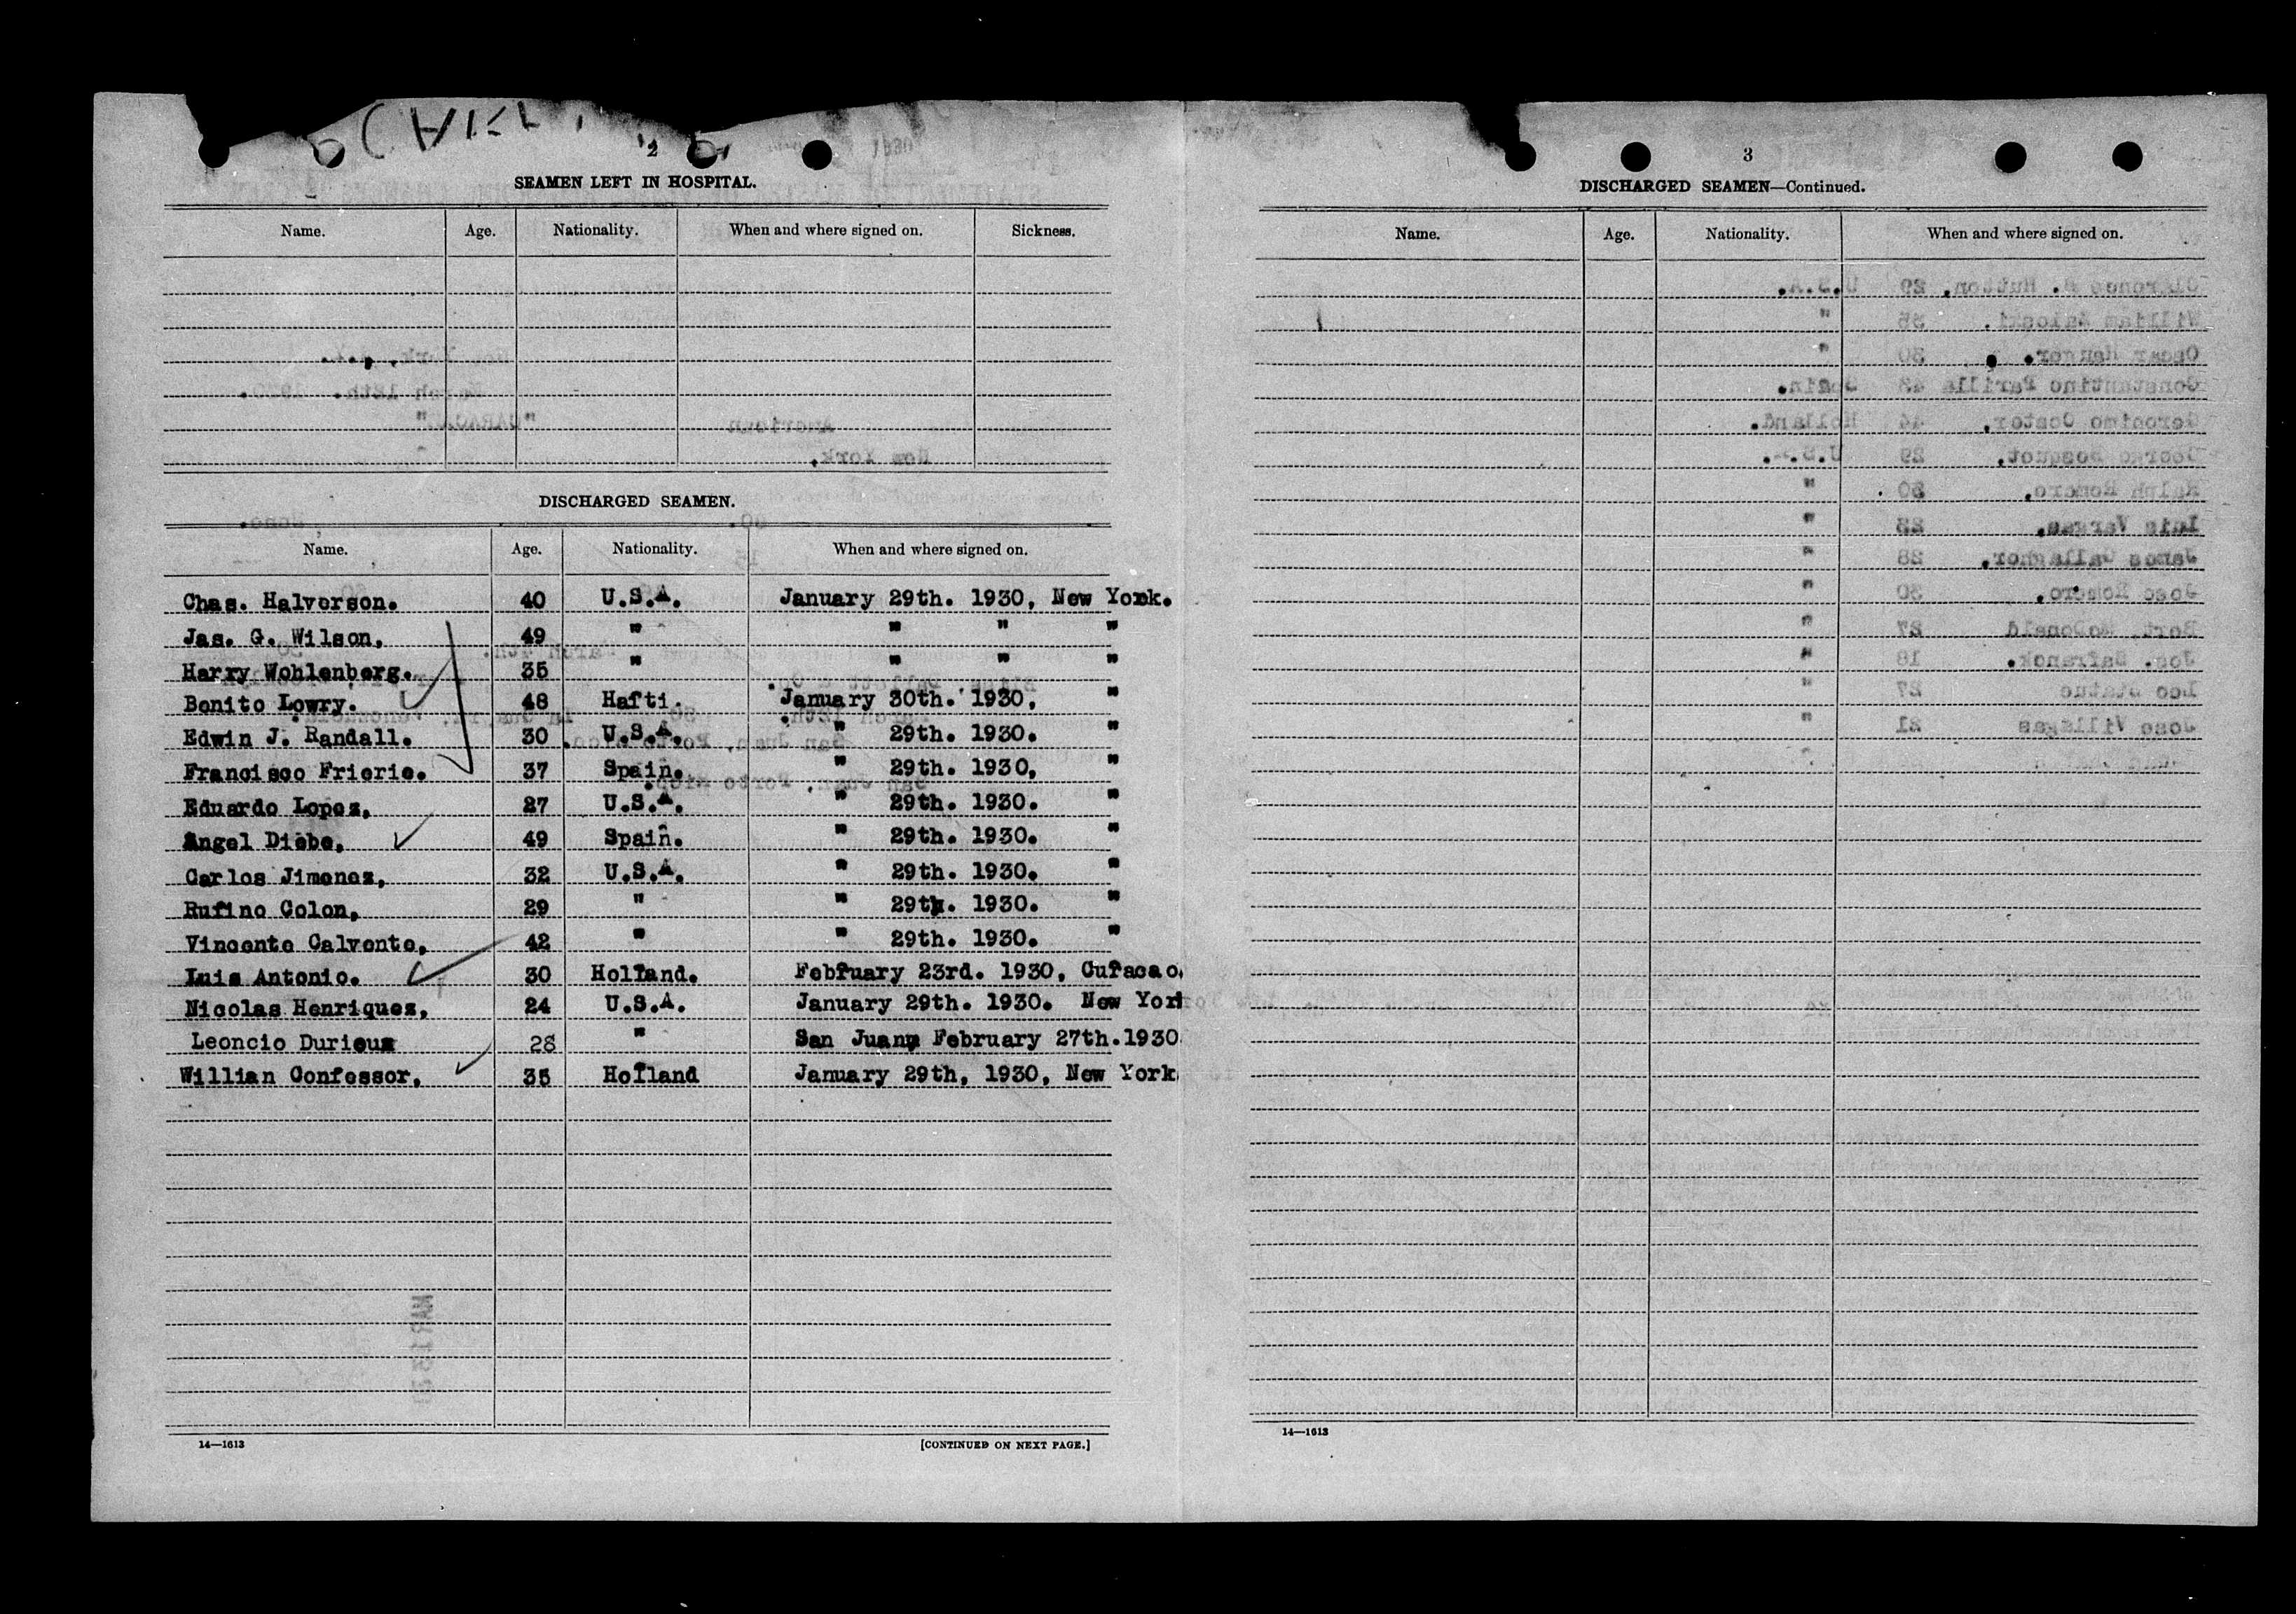 2
SEAMEN LEFT IN HOSPITAL.
Name. Age. Nationality. When and where signed on. Sickness.
DISCHARGED SEAMEN.
Name. Age. Nationality. When and where signed on.
Chas. Halverson. 40 U.S.A. January 29th. 1930, New York.
Jas. G. Wilson, 49 " " " "
Harry Wohlenberg. 35 " " " "
Bonito Lowry. 48 Haiti. January 30th. 1930, "
Edwin J. Randall. 30 U.S.A. " 29th. 1930. "
Francisco Frierie. 37 Spain. " 29th. 1930, "
Eduardo Lopez, 27 U.S.A. " 29th. 1930. "
Angel Diebe, 49 Spain. " 29th. 1930. "
Carlos Jimenez, 32 U.S.A. " 29th. 1930. "
Rufino Colon, 29 " " 29th. 1930. "
Vincente Calvente, 42 " " 29th. 1930. "
Luis Antonio. 30 Holland. February 23rd. 1930, Curacao.
Nicolas Henriquez, 24 U.S.A. January 29th. 1930. New York
Leoncio Durieux 28 " San Juan, February 27th.1930
Willian Confessor, 35 Holland January 29th, 1930, New York
14—1613
[CONTINUED ON NEXT PAGE.]
3
DISCHARGED SEAMEN—Continued.
Name. Age. Nationality. When and where signed on.
14—1613